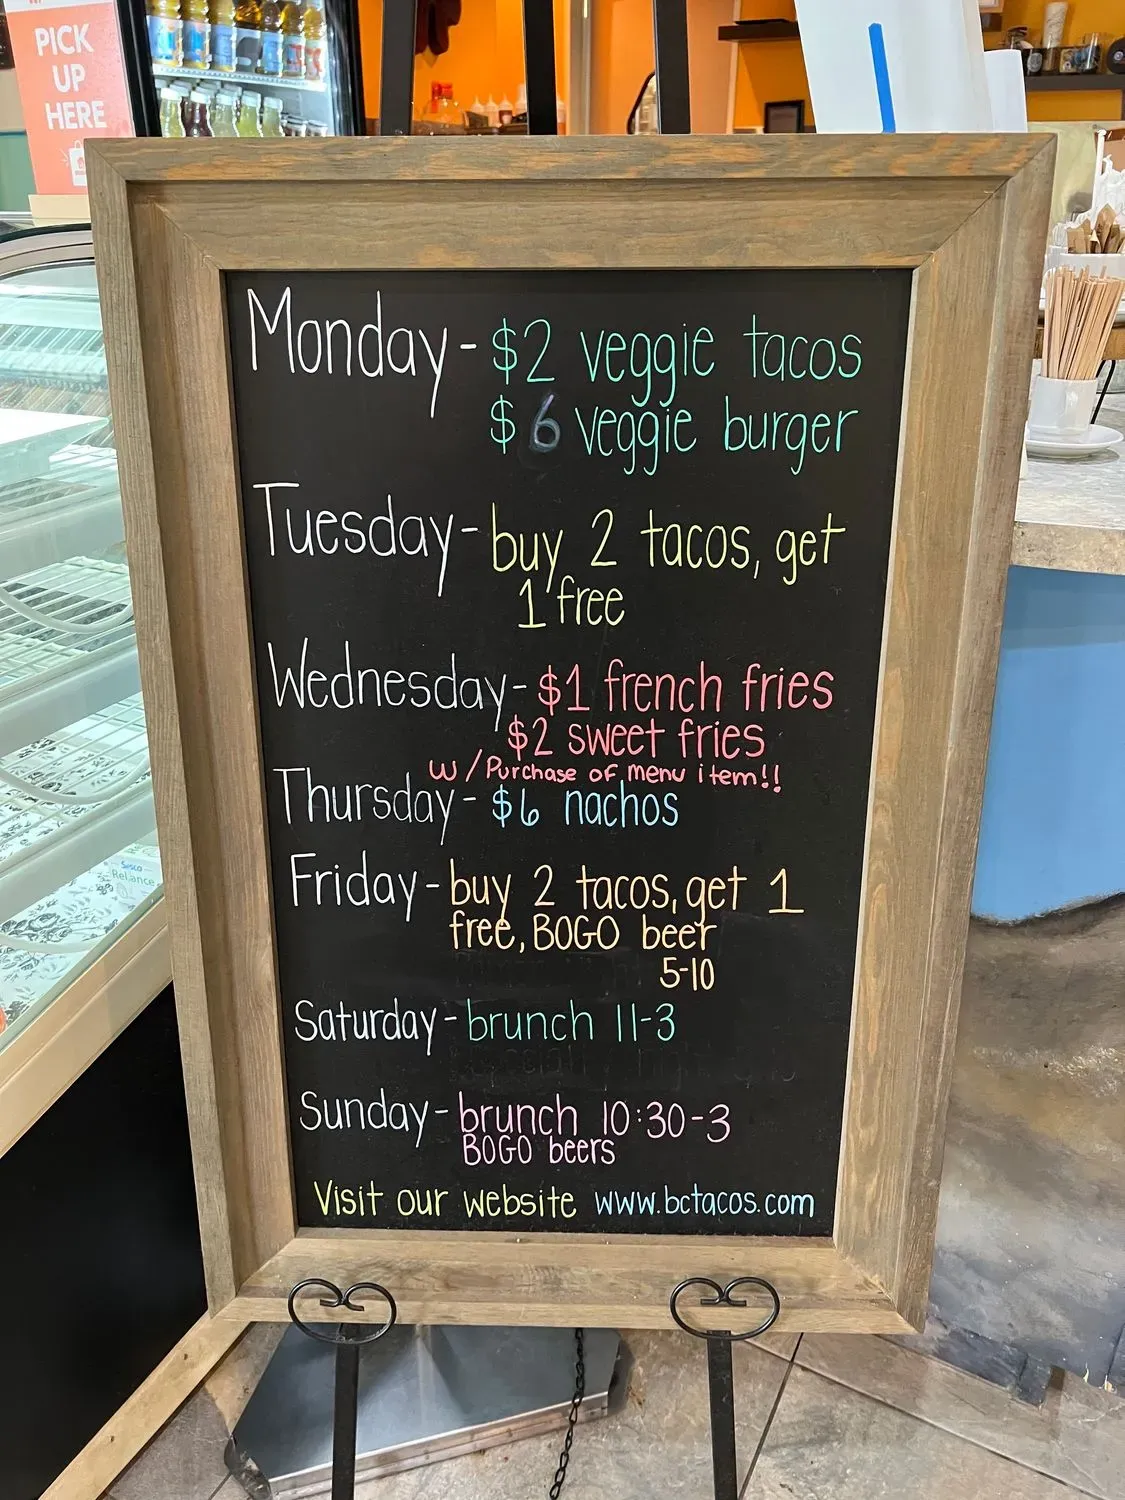 PICK
UP
HERE
Monday - $2 veggie tacos
$6 veggie burger
Tuesday - buy 2 tacos, get
1 free
Wednesday - $1 french fries
$2 sweet fries
w/Purchase of menu item!!
Thursday - $6 nachos
Friday - buy 2 tacos, get 1
free, BOGO beer
5-10
Saturday - brunch 11-3
Sunday - brunch 10:30-3
BOGO beers
Visit our website www.bctacos.com
Sysco
Reliance